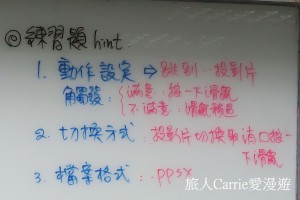 ◎練習題 hint.
1. 動作設定 ⇒ 跳到…投影片
觸發:滿意:按一下滑鼠
不滿意:滑鼠移過
2. 切換方式:投影片切換取消口按一
下滑鼠
3. 檔案格式:.ppsx
旅人Carrie愛漫遊